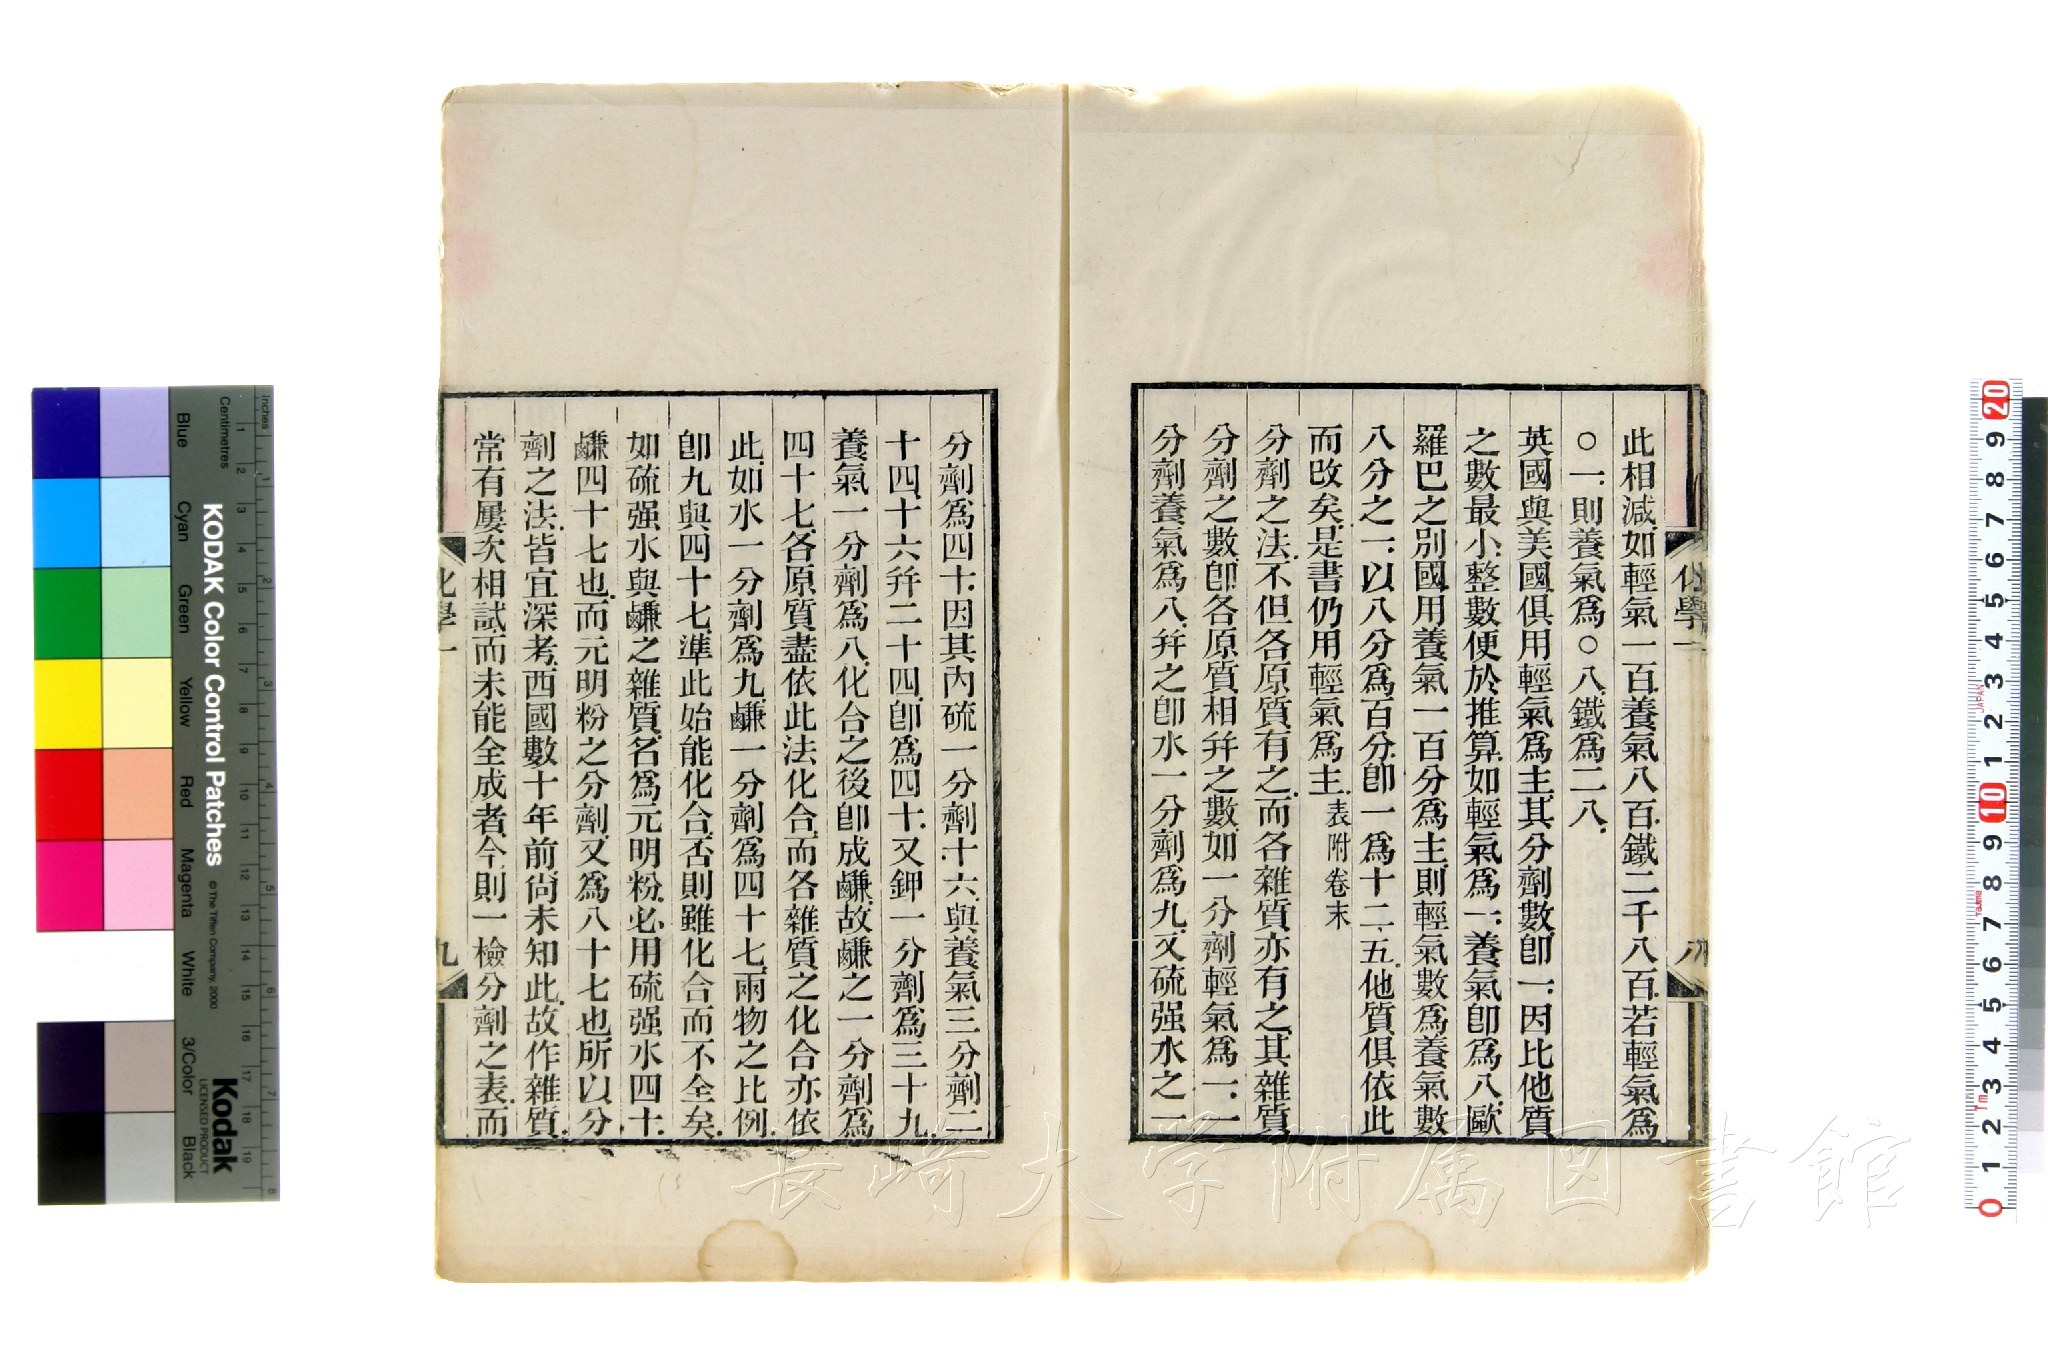 此相減、如輕氣一百、養氣八百、鐵二千八百、若輕氣爲
○一、則養氣爲○八、鐵爲二八、
英國與美國、俱用輕氣爲主、其分劑數、卽一、因比他質
之數最小、整數便於推算、如輕氣爲一、養氣卽爲八、歐
羅巴之別國、用養氣一百分爲主、則輕氣數爲養氣數
八分之一、以八分爲百分、卽一爲十二、五、他質俱依此
而改矣、是書仍用輕氣爲主、表附卷末
分劑之法、不但各原質有之、而各雜質亦有之、其雜質
分劑之數、卽各原質相幷之數、如一分劑輕氣爲一、一
分劑養氣爲八、幷之卽水一分劑爲九、又硫强水之一
化學一
八
分劑爲四十、因其內硫一分劑十六、與養氣三分劑二
十四、十六幷二十四、卽爲四十、又鉀一分劑爲三十九
養氣一分劑爲八、化合之後卽成鹻、故鹻之一分劑爲
四十七、各原質盡依此法化合、而各雜質之化合亦依
此、如水一分劑爲九、鹻一分劑爲四十七、兩物之比例、
卽九與四十七、準此始能化合、否則雖化合而不全矣、
如硫强水與鹻之雜質、名爲元明粉、必用硫强水四十、
鹻四十七也、而元明粉之分劑、又爲八十七也、所以分
劑之法、皆宜深考、西國數十年前尙未知此、故作雜質、
常有屢次相試、而未能全成者、今則一檢分劑之表、而
化學一
九
KODAK Color Control Patches
© The Tiffen Company, 2000
Kodak
LICENSED PRODUCT
Inches
Centimetres
Blue
Cyan
Green
Yellow
Red
Magenta
White
3/Color
Black
長崎大学附属図書館
JAPAN
Tajima